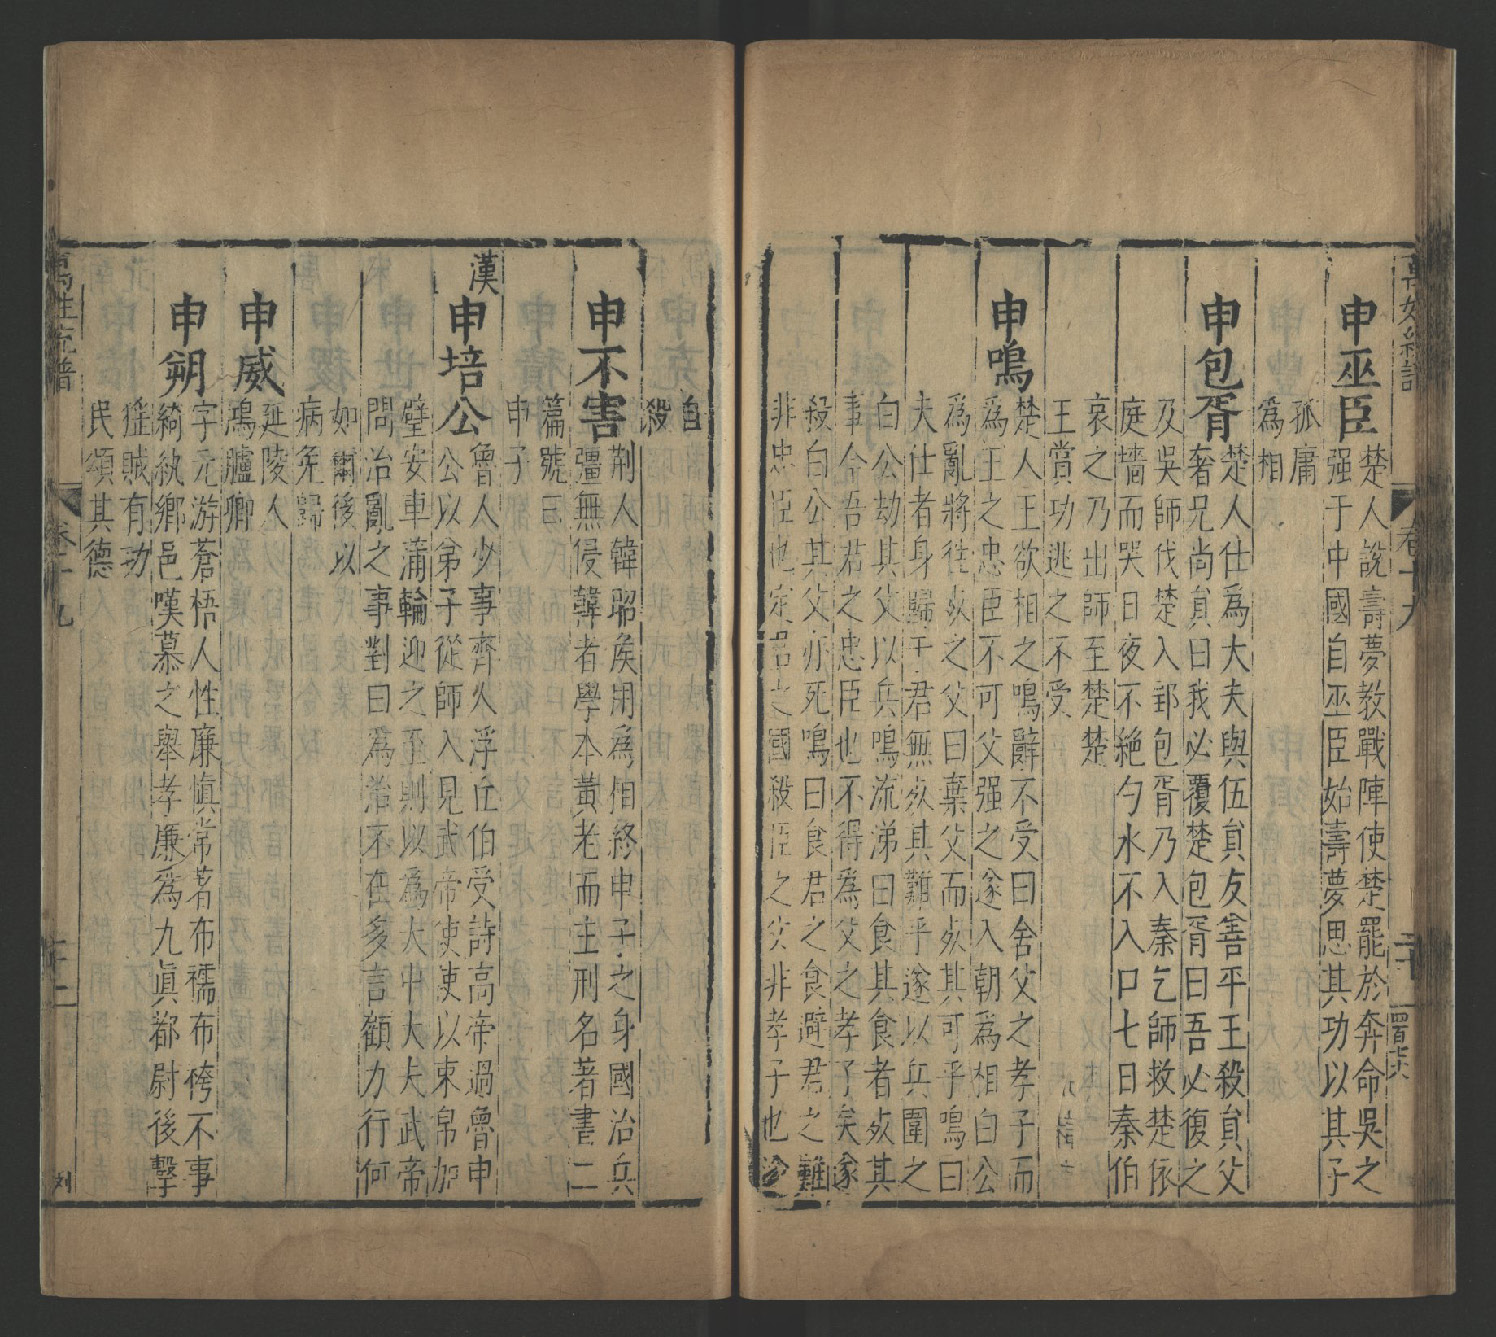 申巫臣
楚人說壽夢教戰陣使楚罷於奔命吳之
强于中國自巫臣始壽夢思其功以其子
孤庸
為相
申包胥
楚人仕爲大夫與伍貟友善平王殺貟父
奢兄尚貟曰我必覆楚包胥曰吾必復之
及吳師伐楚入郢包胥乃入秦乞師救楚依
庭墻而哭日夜不絶勺水不入口七日秦伯
哀之乃出師至楚楚
王賞功逃之不受
申鳴
楚人王欲相之鳴辭不受曰舍父之孝子而
為王之忠臣不可父强之遂入朝為相白公
為亂將徃死之父曰棄父而死其可乎鳴曰
夫仕者身歸于君無死其難乎遂以兵圍之
白公劫其父以兵鳴流涕曰食其食者死其
事今吾君之忠臣也不得為父之孝子矣遂
殺白公其父亦死鳴曰食君之食避君之難
非忠臣也定君之國殺臣之父非孝子也
自
殺
申不害
荆人韓昭侯用為相終申子之身國治兵
彊無侵韓者學本黃老而主刑名著書二
篇號曰
申子
漢
申培公
魯人少事齊人浮丘伯受詩高帝過魯申
公以弟子從師入見武帝使使以束帛加
璧安車蒲輪迎之至則以為大中大夫武帝
問治亂之事對曰為治不在多言顧力行何
如爾後以
病免歸
申威
延陵人
鴻臚卿
申朔
字元游蒼梧人性廉慎常著布襦布袴不事
綺紈鄉邑嘆慕之舉孝廉爲九眞都尉後擊
徃賊有功
民頌其德
卷十九